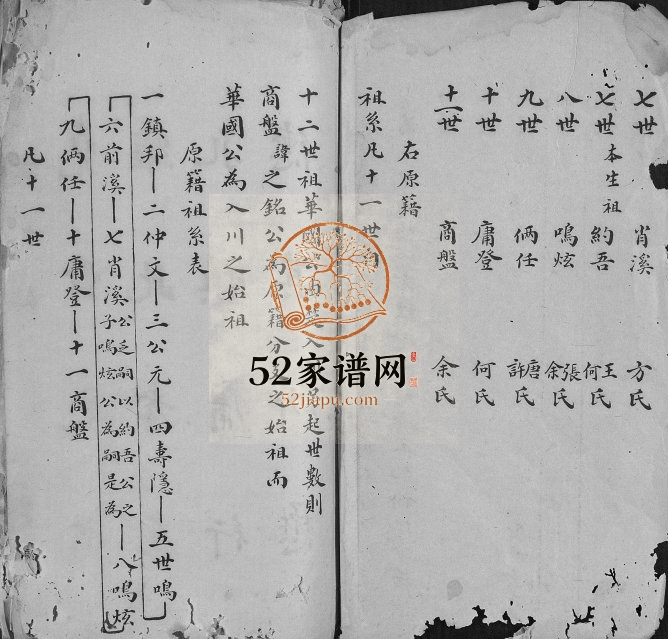 七世 肖溪 方氏
七世 本生祖 約吾 王氏 何氏
八世 鳴炫 張氏 余氏
九世 俩任 唐氏 許氏
十世 庸登 何氏
十一世 商盤 余氏
右原籍
祖系凡十一世
十二世祖華 入 起世數則
商盤諱之銘公為原籍分 之始祖而
華國公為入川之始祖
原籍祖系表
一鎮邦—二仲文—三公元—四壽隱—五世鳴
六前溪—七肖溪公乏嗣以約吾公之子鳴炫公為嗣是為—八鳴炫
九俩任—十庸登—十一商盤
凡十一世
52家谱网
52jiapu.com